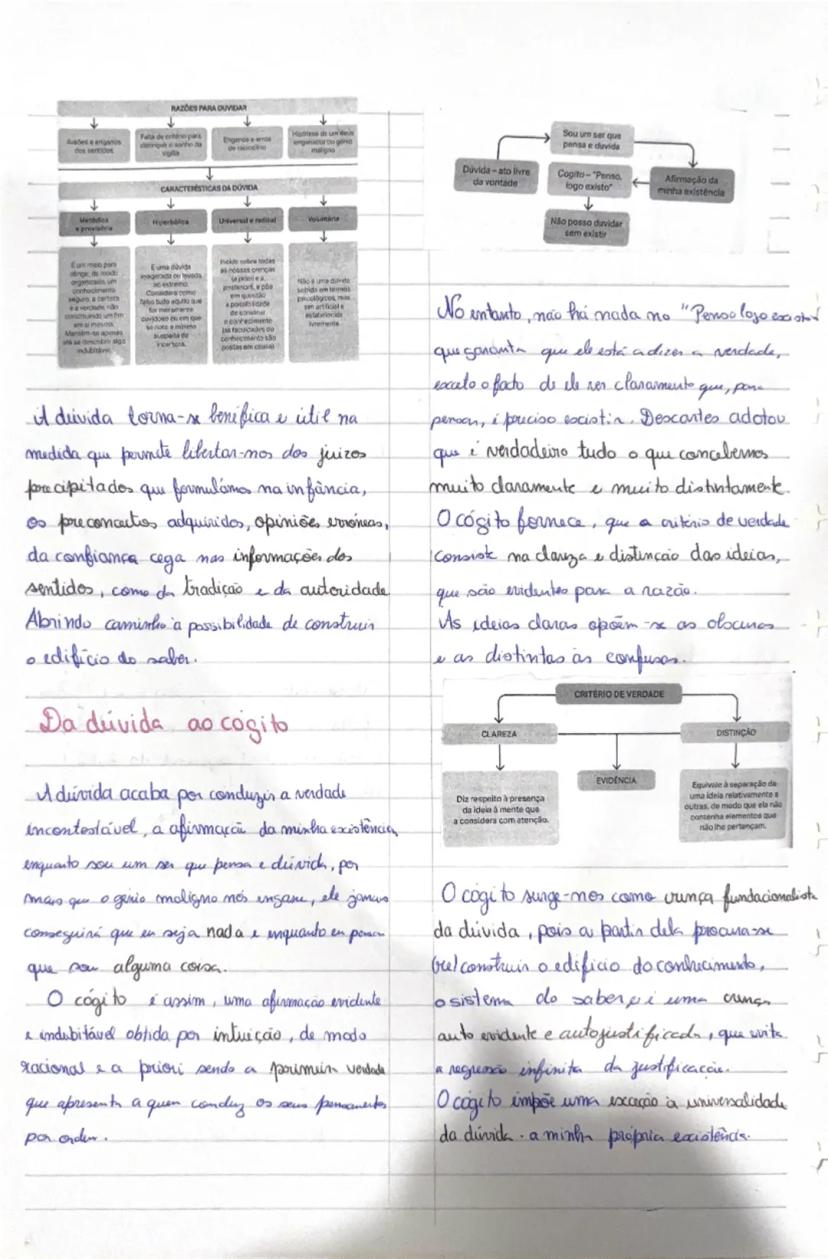 RAZÕES PARA DUVIDAR
Ilusões e enganos
dos sentidos
Falta de critério para
distinguir o sonho da
vigília
Enganos e erros
de raciocínio
Hipótese de um deus
enganador ou génio
maligno
CARACTERÍSTICAS DA DÚVIDA
Metódica
e provisória
Hiperbólica
Universal e radical
Voluntária
É um meio para
atingir, de modo
organizado, um
conhecimento
seguro, a certeza
e a verdade, não
constituindo um fim
em si mesma.
Mantém-se apenas
até se descobrir algo
indubitável.
É uma dúvida
exagerada ou levada
ao extremo.
Considera como
falso tudo aquilo que
for meramente
duvidoso ou em que
se note a mínima
suspeita de
incerteza.
Incide sobre todas
as nossas crenças
(a priori e a
posteriori), e põe
em questão
a possibilidade
de construir
o conhecimento
(as faculdades do
conhecimento são
postas em causa).
Não é uma dúvida
sentida em termos
psicológicos, mas
sim artificial e
estabelecida
livremente.
A dúvida torna-se benéfica e útil na
medida que permite libertar-nos dos juizos
precipitados que formulámos na infância,
os preconceitos adquiridos, opiniões erróneas,
da confiança cega nas informações dos
sentidos, como da tradição e da autoridade
Abrindo caminho à possibilidade de construir
o edifício do saber.
Da dúvida ao cógito
A dúvida acaba por conduzir a verdade
incontestável, a afirmação da minha existência,
enquanto sou um ser que pensa e dúvida, por
mais que o génio maligno nos engane, ele jamais
conseguirá que eu seja nada e enquanto eu pensar
que sou alguma coisa.
O cógito é assim, uma afirmação evidente
e indubitável obtida por intuição, de modo
racional e a priori sendo a primeira verdade
que apresenta a quem conduz os seus pensamentos
por ordem.
Dúvida – ato livre
da vontade
Sou um ser que
pensa e duvida
Afirmação da
minha existência
Cogito – "Penso,
logo existo"
Não posso duvidar
sem existir
No entanto, não há nada no "Penso logo existo"
que garanta que ele está a dizer a verdade,
exceto o facto de ele ver claramente que, para
pensar, é preciso existir. Descartes adotou
que é verdadeiro tudo o que concebemos
muito claramente e muito distintamente.
O cógito fornece, que o critério de verdade
consiste na clareza e distinção das ideias,
que são evidentes para a razão.
As ideias claras opõem-se as obscuras
e as distintas às confusas.
CRITÉRIO DE VERDADE
CLAREZA
DISTINÇÃO
EVIDÊNCIA
Diz respeito à presença
da ideia à mente que
a considera com atenção.
Equivale à separação de
uma ideia relativamente a
outras, de modo que ela não
contenha elementos que
não lhe pertençam.
O cógito surge-nos como crença fundacionalista
da dúvida, pois a partir dela procura-se
(re)construir o edifício do conhecimento,
o sistema do saber, é uma crença
auto evidente e autojustificada, que evita
a regressão infinita da justificação.
O cógito impõe uma exceção à universalidade
da dúvida - a minha própria existência.